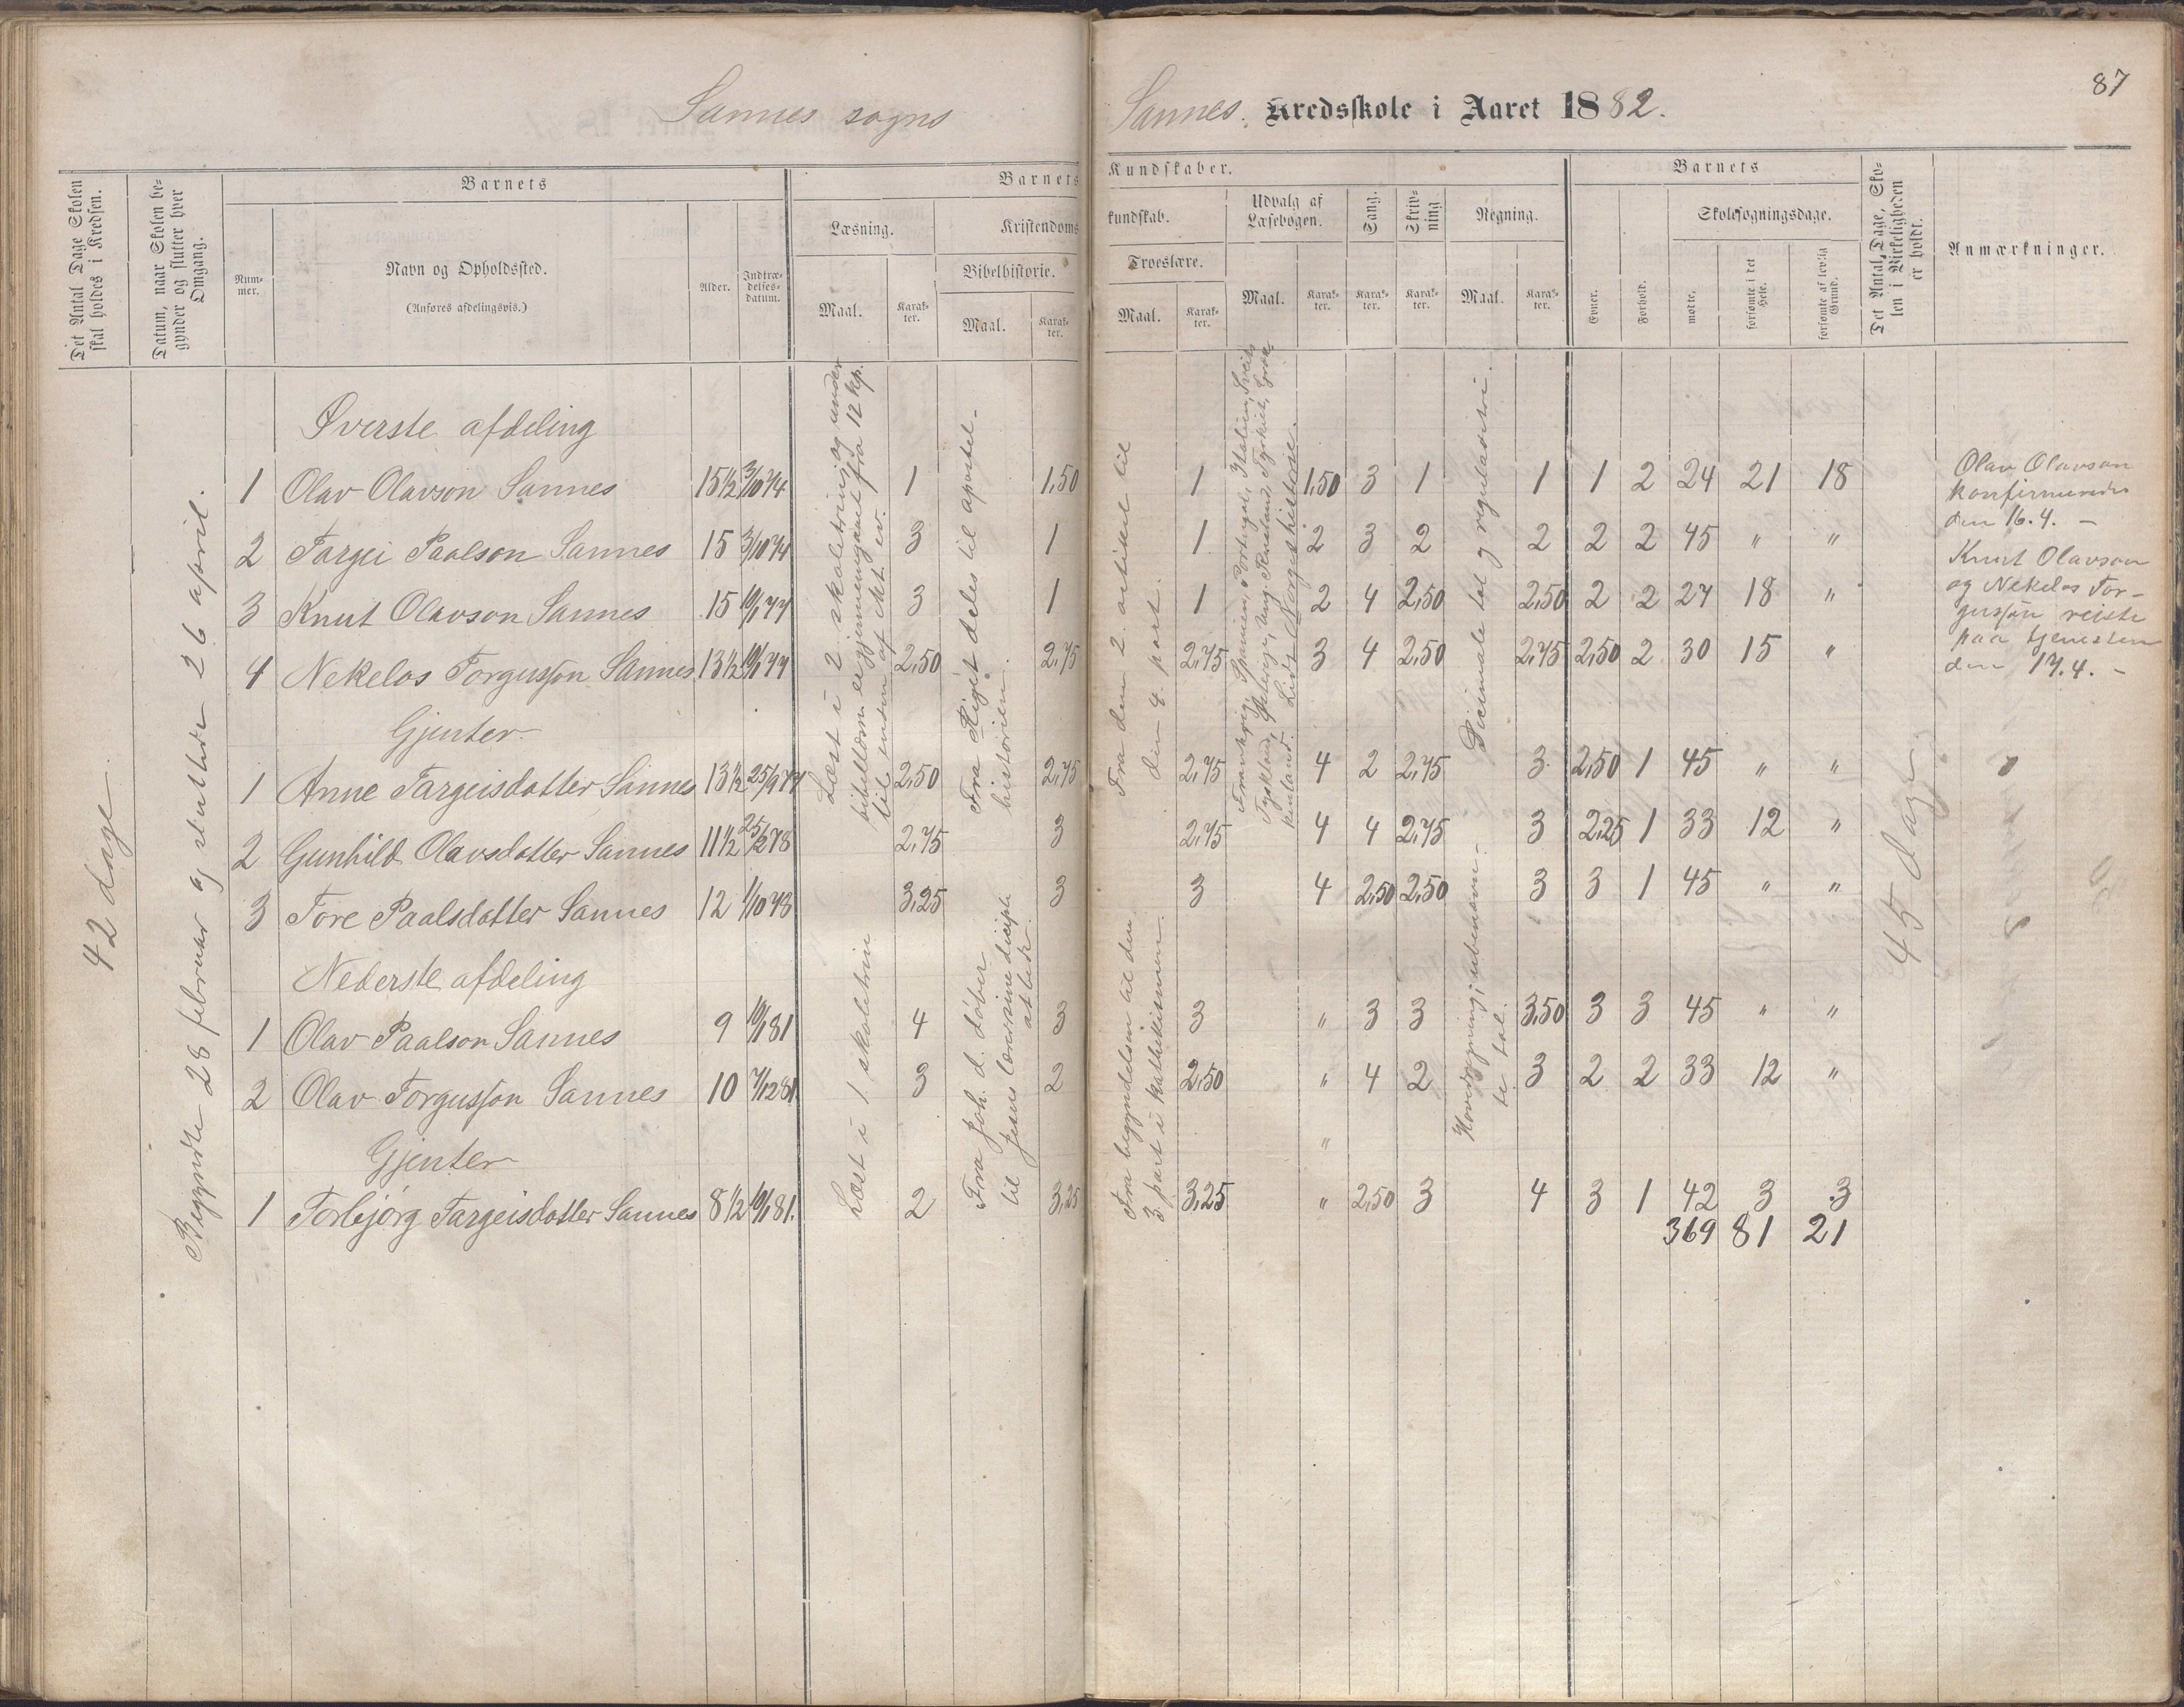 87
Sannes sogns
Sannes. Kredsskole i Aaret 1882.
Det Antal Dage Skolen
skal holdes i Kredsen.
Datum, naar Skolen be-
gynder og slutter hver
Omgang.
Barnets
Num-
mer.
Navn og Opholdssted.
(Anføres afdelingsvis.)
Alder.
Indtræ-
delses-
datum.
Barnets
Læsning.
Maal.
Karak-
ter.
Kristendoms
Bibelhistorie.
Maal.
Karak-
ter.
Kundskaber.
kundskab.
Troeslære.
Maal.
Karak-
ter.
Udvalg af
Læsebogen.
Maal.
Karak-
ter.
Sang.
Karak-
ter.
Skriv-
ning
Karak-
ter.
Regning.
Maal.
Karak-
ter.
Barnets
Evner.
Forhold.
Skolesøgningsdage.
mødte.
forsømte i det
Hele.
forsømte af lovlig
Grund.
Det Antal Dage, Sko-
len i Virkeligheden
er holdt.
Anmærkninger.
42 dage
Begyndte 28 februar og sluttede 26 april.
Øverste afdeling
1 Olav Olavson Sannes 15½ 3/10 74 1 1,50 1 1,50 3 1 1 1 2 24 21 18
2 Targei Paalson Sannes 15 3/10 74 3 1 1 2 3 2 2 2 2 45 " "
3 Knut Olavson Sannes 15 10/1 77 3 1 1 2 4 2,50 2,50 2 2 27 18 "
4 Nekelos Torgusson Sannes 13½ 10/1 77 2,50 2,75 2,75 3 4 2,50 2,75 2,50 2 30 15 "
Gjenter
1 Anne Targeisdatter Sannes 13½ 25/9 77 2,50 2,75 2,75 4 2 2,75 3 2,50 1 45 " "
2 Gunhild Olavsdatter Sannes 11½ 25/2 78 2,75 3 2,75 4 4 2,75 3 2,25 1 33 12 "
3 Tore Paalsdatter Sannes 12 1/10 78 3,25 3 3 4 2,50 2,50 3 3 1 45 " "
Nederste afdeling
1 Olav Paalson Sannes 9 10/1 81 4 3 3 " 3 3 3,50 3 3 45 " "
2 Olav Torgusson Sannes 10 7/12 81 3 2 2,50 " 4 2 3 2 2 33 12 "
Gjenter "
1 Torbjørg Targeisdatter Sannes 8½ 10/1 81. 2 3,25 3,25 " 2,50 3 4 3 1 42 3 3
369 81 21
Læst i 2. skoletrin; og under
bibellæsn. er gjennemgaaet fra 12 kp.
til enden af Mt. ev.
Læst i 1 skoletrin
Fra Riget deles til apostel-
historien.
Fra Joh. d. døber
til Jesus lærer sine disciple
at bede
Fra den 2. artikel til
den 4. part.
Fra begyndelsen til den
3. part i katekismen.
Frankrig, Spanien, Portugal, Italien, Sveits
Tyskland, Østerrig, Ung. Rusland, Tyrkiet, Græ-
kenland. Lidt Norgeshistorie.
Decimale tal og reguladetri.
Hovedregning; ubenævn-
te tal.
45 dage
Olav Olavson
konfirmeredes
den 16.4. –
Knut Olavson
og Nekelos Tor-
gusson reiste
paa tjenesten
den 17.4. –